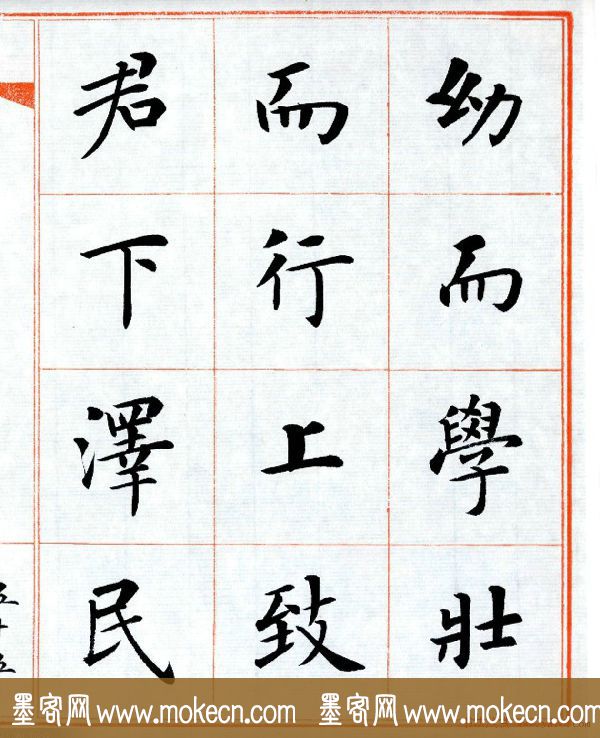 幼而學壯
而行上致
君下澤民
五十五
墨客网 www.mokecn.com 墨客网 www.mokecn.com